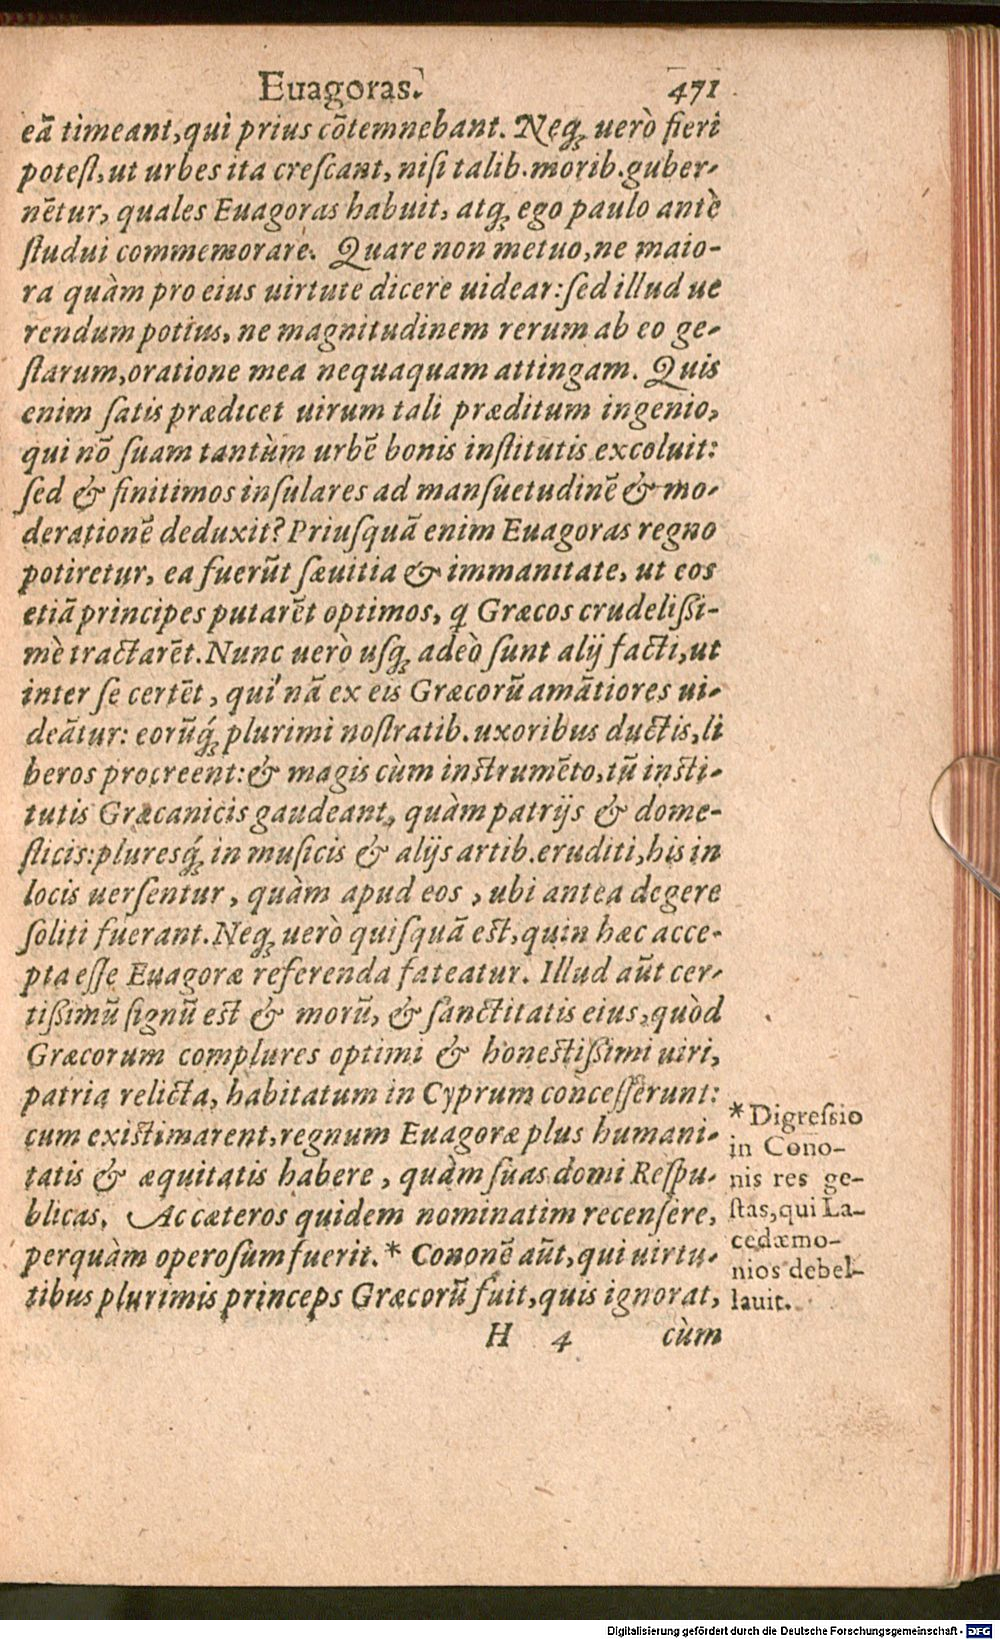 Euagoras. 471
eā timeant, qui prius cōtemnebant. Neq; uerò fieri
poteſt, ut urbes ita creſcant, niſi talib. morib. guber-
nētur, quales Euagoras habuit, atq; ego paulo antè
ſtudui commemorare. Quare non metuo, ne maio-
ra quàm pro eius uirtute dicere uidear: ſed illud ue
rendum potius, ne magnitudinem rerum ab eo ge-
ſtarum, oratione mea nequaquam attingam. Quis
enim ſatis prædicet uirum tali præditum ingenio,
qui nō ſuam tantùm urbē bonis inſtitutis excoluit:
ſed & finitimos inſulares ad manſuetudinē & mo-
derationē deduxit? Priuſquā enim Euagoras regno
potiretur, ea fuerūt ſæuitia & immanitate, ut eos
etiā principes putarēt optimos, q Græcos crudelißi-
mè tractarēt. Nunc uerò uſq; adeò ſunt alij facti, ut
inter ſe certēt, qui nā ex eis Græcorū amātiores ui-
deātur: eorūq́; plurimi noſtratib. uxoribus ductis, li
beros procreent: & magis cùm inſtrumēto, tū inſti-
tutis Græcanicis gaudeant, quàm patrijs & dome-
ſticis: pluresq́; in muſicis & alijs artib. eruditi, his in
locis uerſentur, quàm apud eos, ubi antea degere
ſoliti fuerant. Neq; uerò quiſquā eſt, quin hæc acce-
pta eſſe Euagoræ referenda fateatur. Illud aūt cer-
tißimū ſignū eſt & morū, & ſanctitatis eius, quòd
Græcorum complures optimi & honeſtißimi uiri,
patria relicta, habitatum in Cyprum conceſſerunt:
cum exiſtimarent, regnum Euagoræ plus humani-
tatis & æquitatis habere, quàm ſuas domi Reſpu-
blicas. Ac cæteros quidem nominatim recenſere,
perquàm operoſum fuerit. * Cononē aūt, qui uirtu-
tibus plurimis princeps Græcorū fuit, quis ignorat,
H 4 cùm
* Digreſsio
in Cono-
nis res ge-
ſtas, qui La-
cedæmo-
nios debel-
lauit.
Digitalisierung gefördert durch die Deutsche Forschungsgemeinschaft - DFG